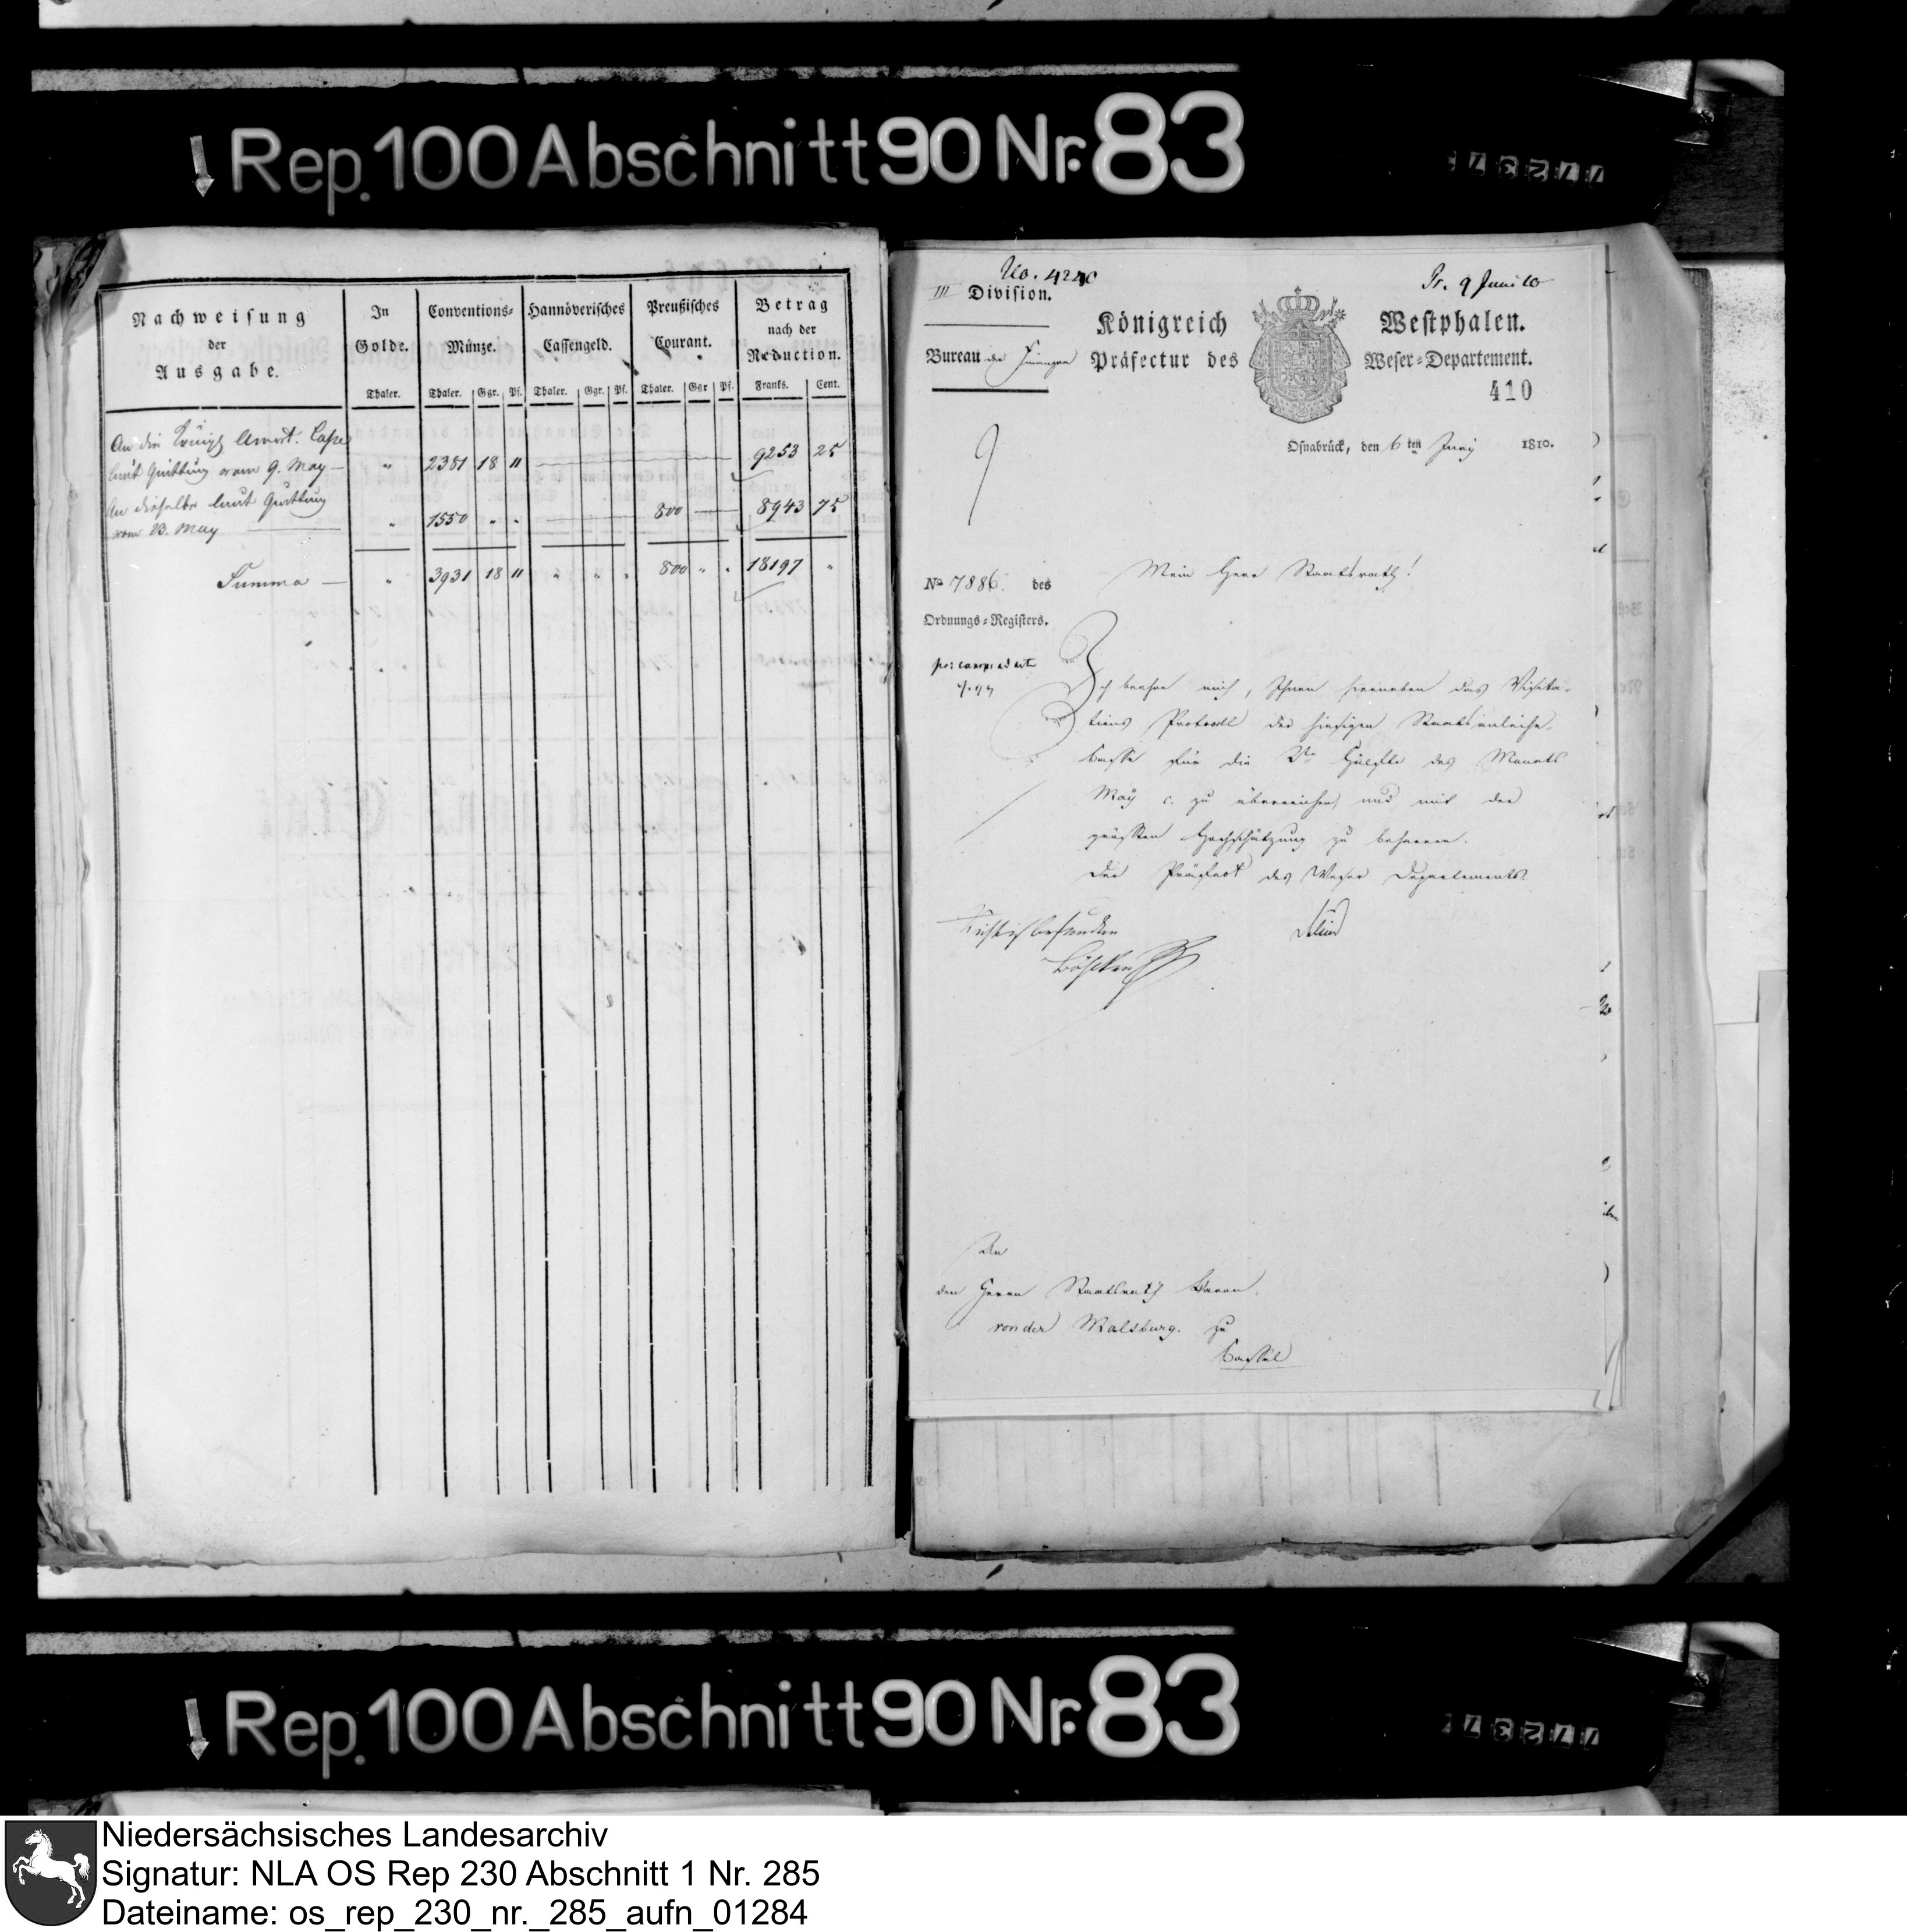 Rep. 100 Abschnitt 90 Nr. 83
77237
Nachweisung
der
Ausgabe.
In
Golde.
Thaler.
Conventions-
Münze.
Thaler. Ggr. Pf.
Hannöverisches
Cassengeld.
Thaler. Ggr. Pf.
Preußisches
Courant.
Thaler. Ggr Pf.
Betrag
nach der
Reduction.
Franks. Cent.
An die Königl Amort: Casse
laut Quittung vom 9. May — " 2381 18 " 9253 25
An dieselbe laut Quittung
vom 23. May " 1550 " " 800 — 8943 75
Summa — " 3931 18 " " " " 800 " " 18197 "
No. 4240
III Division.
Bureau der Finanzen
Pr. 9 Juni 10
Königreich Westphalen.
Präfectur des Weser-Departement.
410
Osnabrück, den 6ten Juny 1810.
9
No 7886. des
Ordnungs-Registers.
Mein Herr Staatsrath!
Ich beehre mich, Ihnen hierneben das Visita-
tions Protocoll der hiesigen Staatsanleihe-
Casse für die 2te Hälfte des Monats
May c. zu überreichen, und mit der
größten Hochschätzung zu beharren.
Der Präfect des Weser Departements.
Richtig befunden
An
den Herrn Staatsrath Baron
von der Malsburg. zu
Cassel
Rep. 100 Abschnitt 90 Nr. 83
77237
Niedersächsisches Landesarchiv
Signatur: NLA OS Rep 230 Abschnitt 1 Nr. 285
Dateiname: os_rep_230_nr._285_aufn_01284